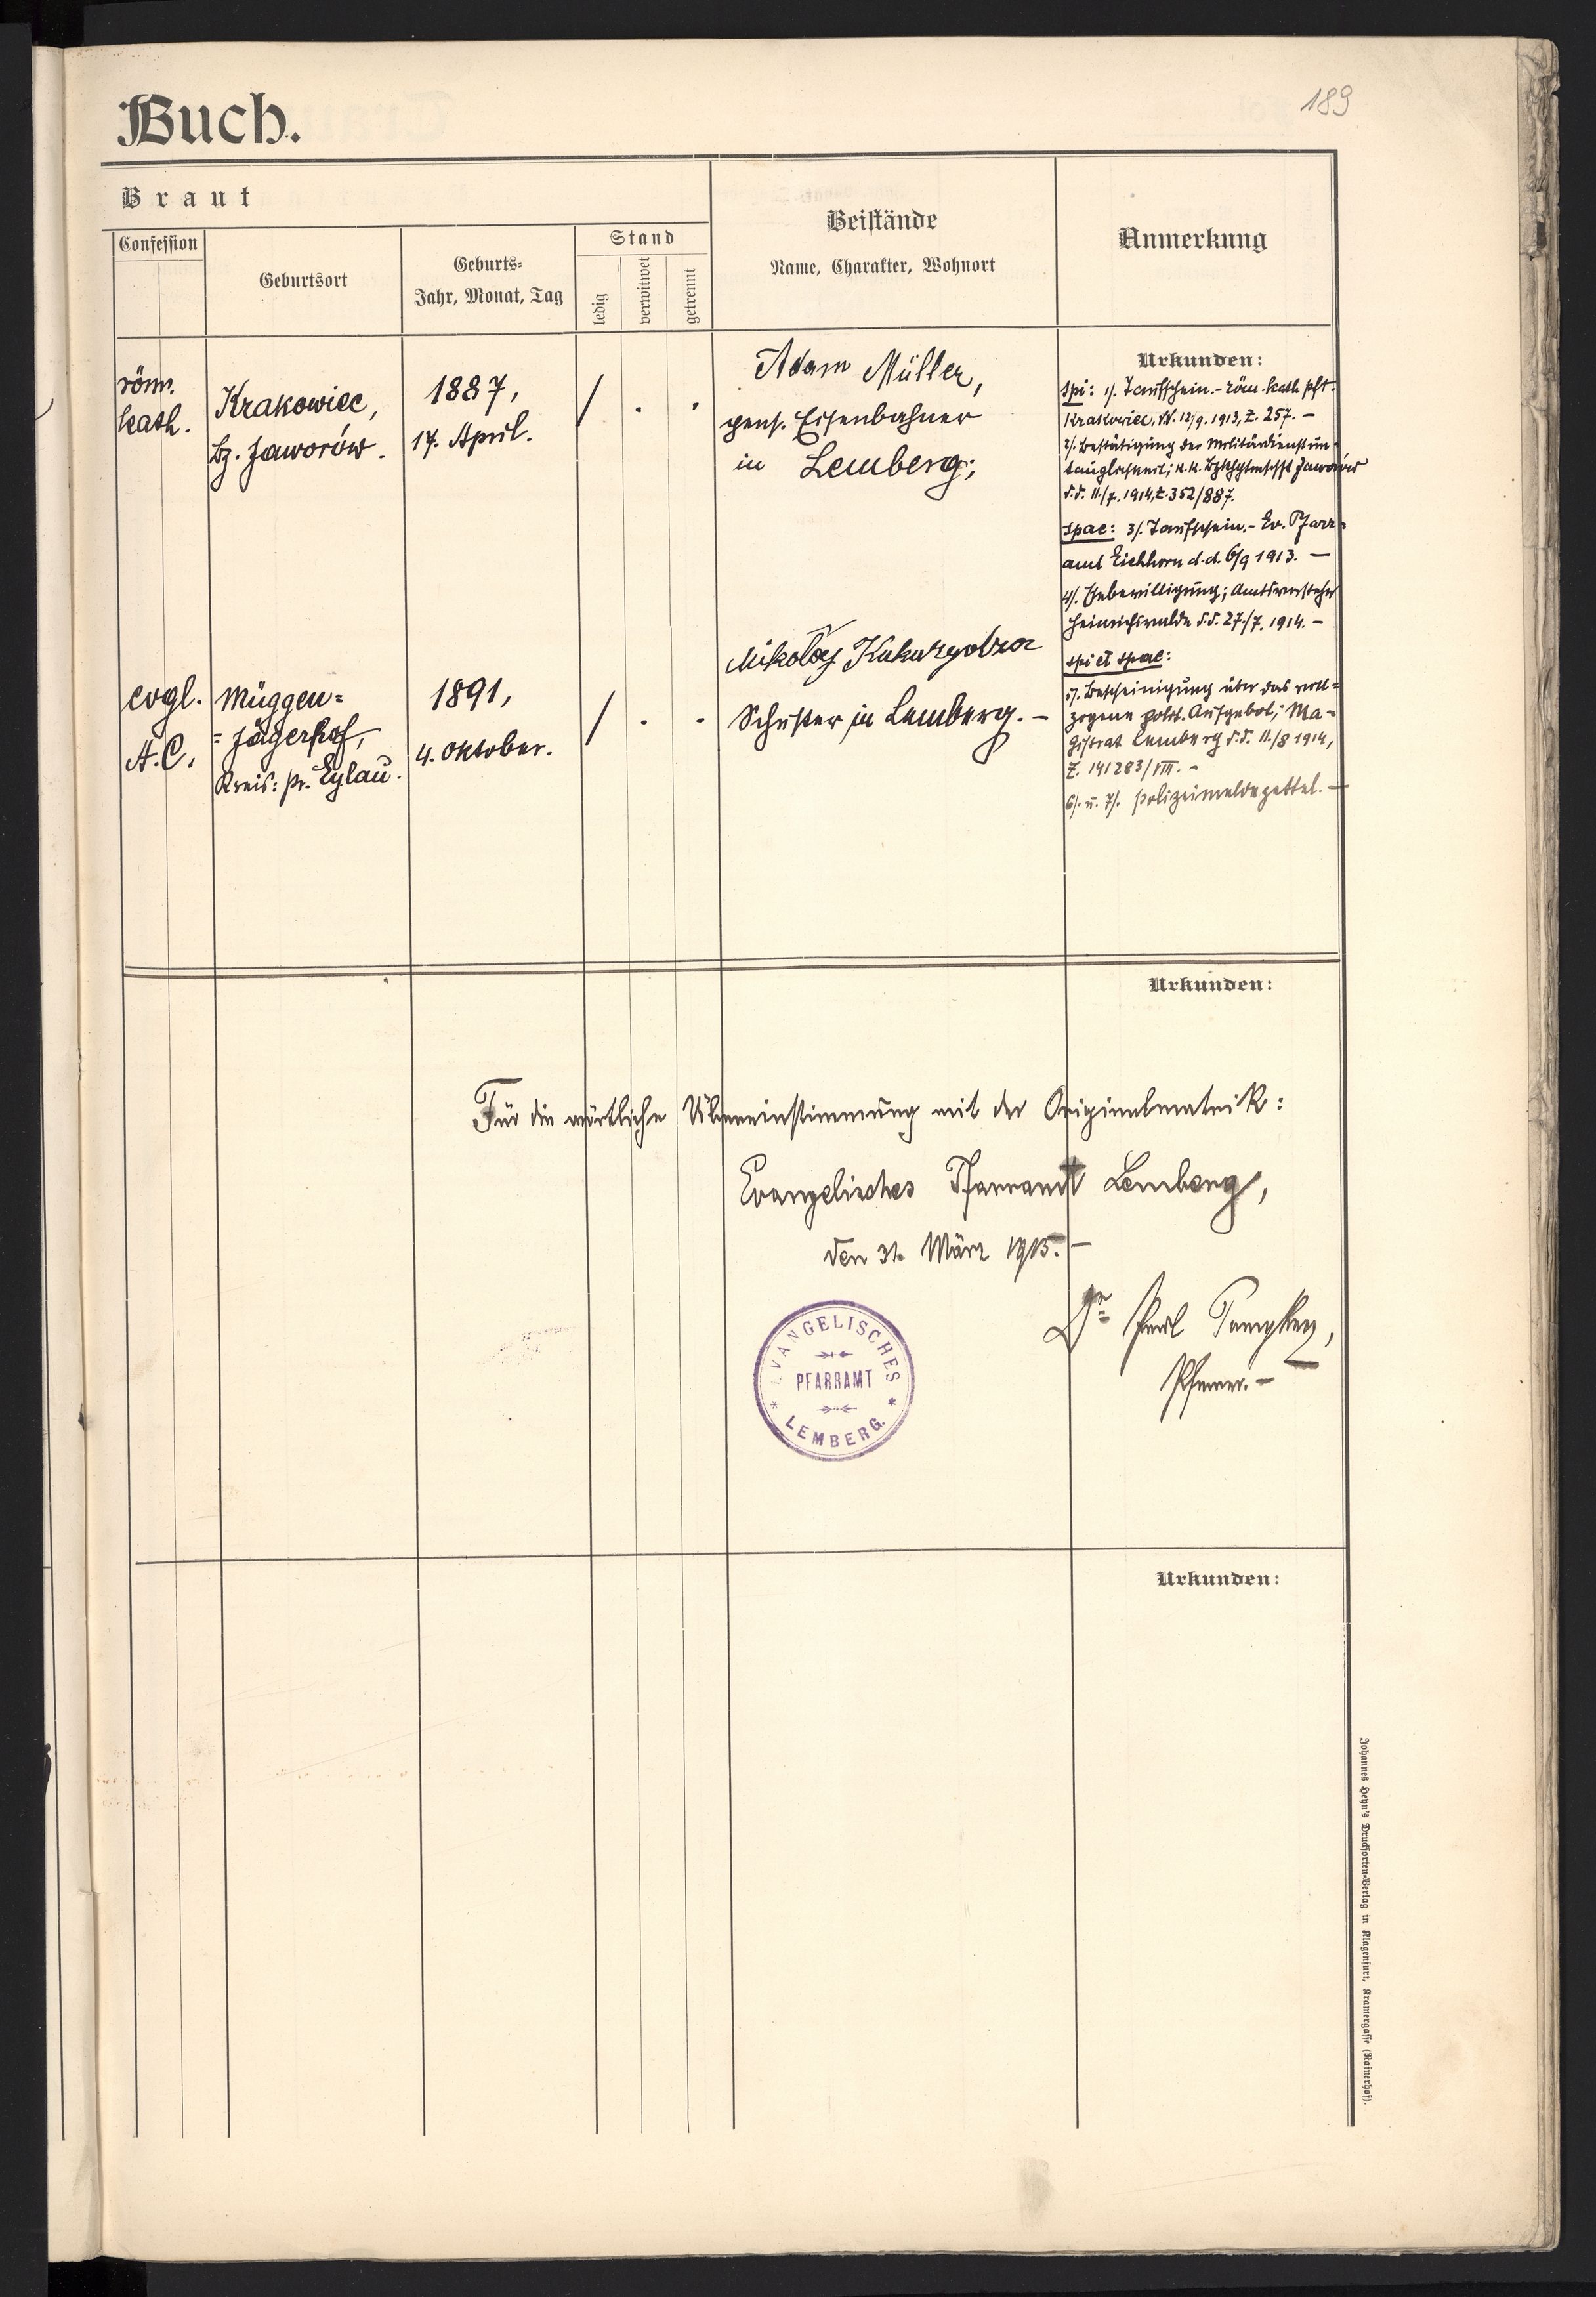 189
Buch.
Braut
Confession
Geburtsort
Geburts-
Jahr, Monat, Tag
Stand
ledig
verwitwet
getrennt
Beistände
Name, Charakter, Wohnort
Anmerkung
röm.
kath.
Krakowiec,
Bz. Jaworów.
1887,
17. April.
/ . .
Adam Müller,
pens. Eisenbahner
in Lemberg;
Urkunden:
spi: 1/. Taufschein.- röm. kath. Pft.
Krakowiec, 12/9. 1913, Z. 257. -
2/. Bestätigung der Militärdienstun-
tauglichkeit; k. k. Jaworów
d.d. 11./7. 1914, Z. 352/887.
spae: 3/. Taufschein.- Ev. Pfarr-
amt Eichhorn d.d. 6/9 1913. -
4/. Ehebewilligung; Amtsvorsteher
Heinrichswalde d.d. 27./7. 1914. -
evgl.
A.C.
Müggen-
= Jägerhof,
Kreis: Pr. Eylau.
1891,
4. Oktober.
/ . .
Mikołaj
Schuster in Lemberg. -
spi et spae:
5/. Bescheinigung über das voll-
zogene polit. Aufgebot; Ma-
gistrat Lemberg d.d. 11./8 1914,
Z. 141283/VIII. -
6/. u. 7/. Polizeimeldezettel. -
Urkunden:
Für die wörtliche Übereinstimmung mit der Originalmatrik:
Evangelisches Pfarramt Lemberg,
den 31. März 1915. -
Dr
Pfarrer. -
EVANGELISCHES
PFARRAMT
* LEMBERG. *
Urkunden:
Johannes Heyn's Drucksorten-Verlag in Klagenfurt, Kramergasse (Rainerhof).